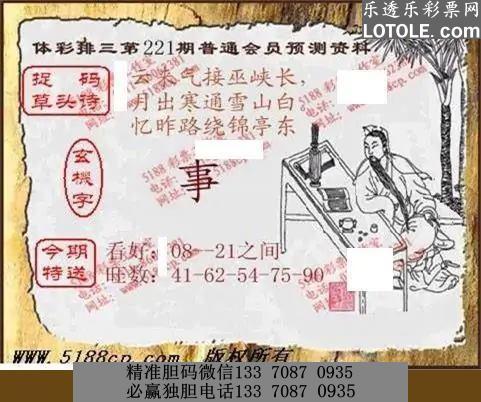 乐透乐彩票网
LOTOLE.COM
体彩排三第221期普通会员预测资料
捉码
草头诗
云来气接巫峡长,
月出寒通雪山白
忆昨路绕锦亭东
玄機字
事
今期
特送
看好:08--21之间
旺数:41-62-54-75-90
www.5188cp.com 版权所有
精准胆码微信133 7087 0935
必赢独胆电话133 7087 0935